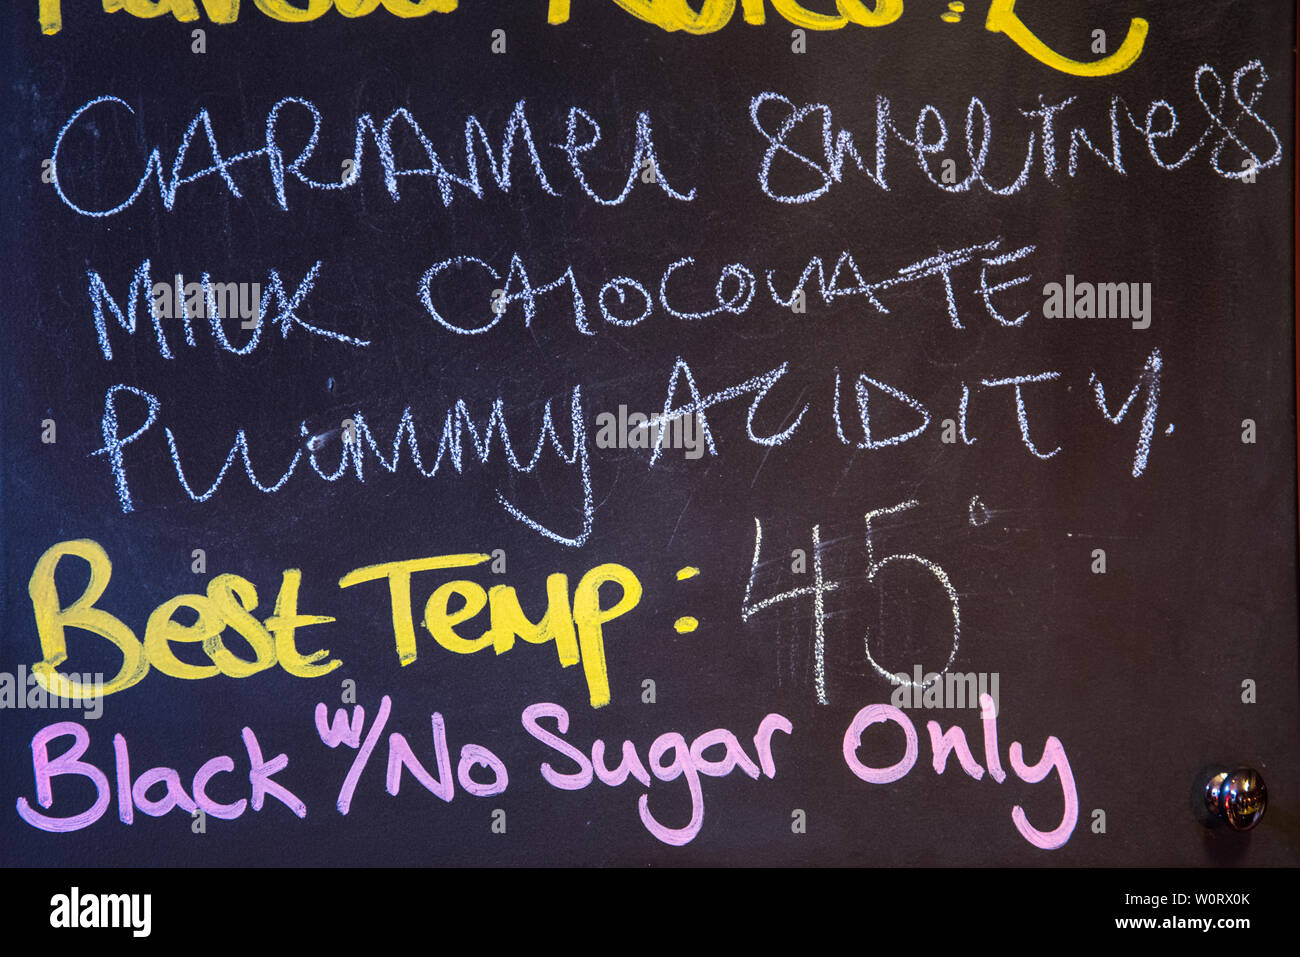 Flavour Notes:
CARAMEL SWEETNESS
MILK CHOCOLATE
PLUMMY ACIDITY.
Best Temp: 45°
Black w/No Sugar Only
a alamy
alamy
Image ID: W0RX0K
www.alamy.com